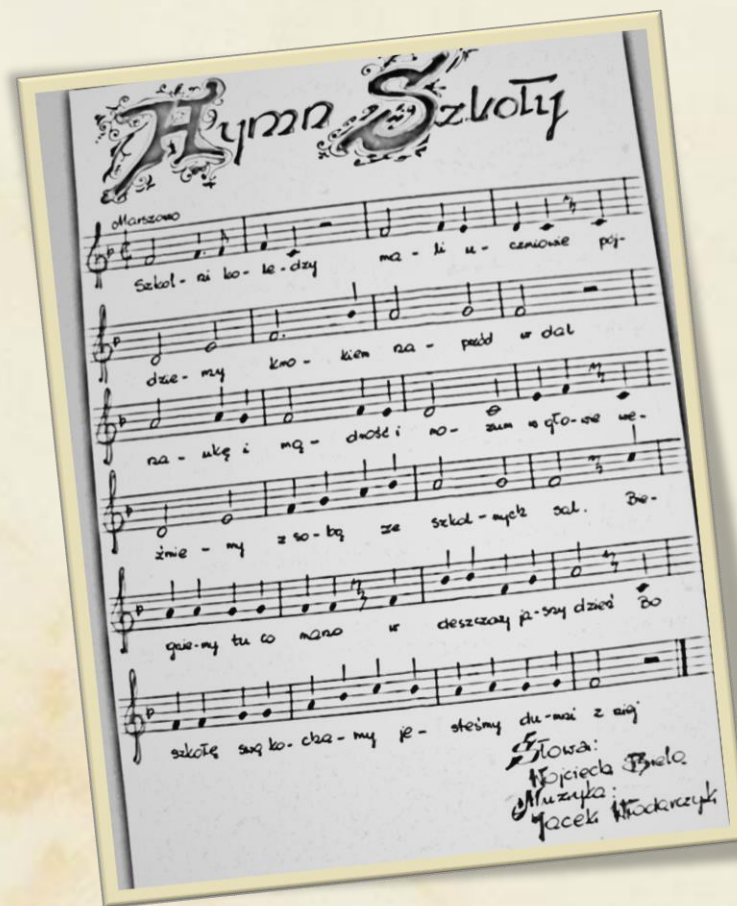 Hymn Szkoły
Marszowo
Szkol - ni ko - le - dzy ma - li u - czniowie pój-
dzie - my kro - kiem na - przód w dal
na - ukę i mą - drość i ro - zum w gło - wie we-
źmie - my z so - bą ze szkol - nych sal. Bie-
gnie - my tu co rano w deszczowy ja - sny dzień Bo
szkołę swą ko - cha - my je - steśmy du - mni z niej
Słowa:
Wojciech
Muzyka:
Jacek Włodarczyk